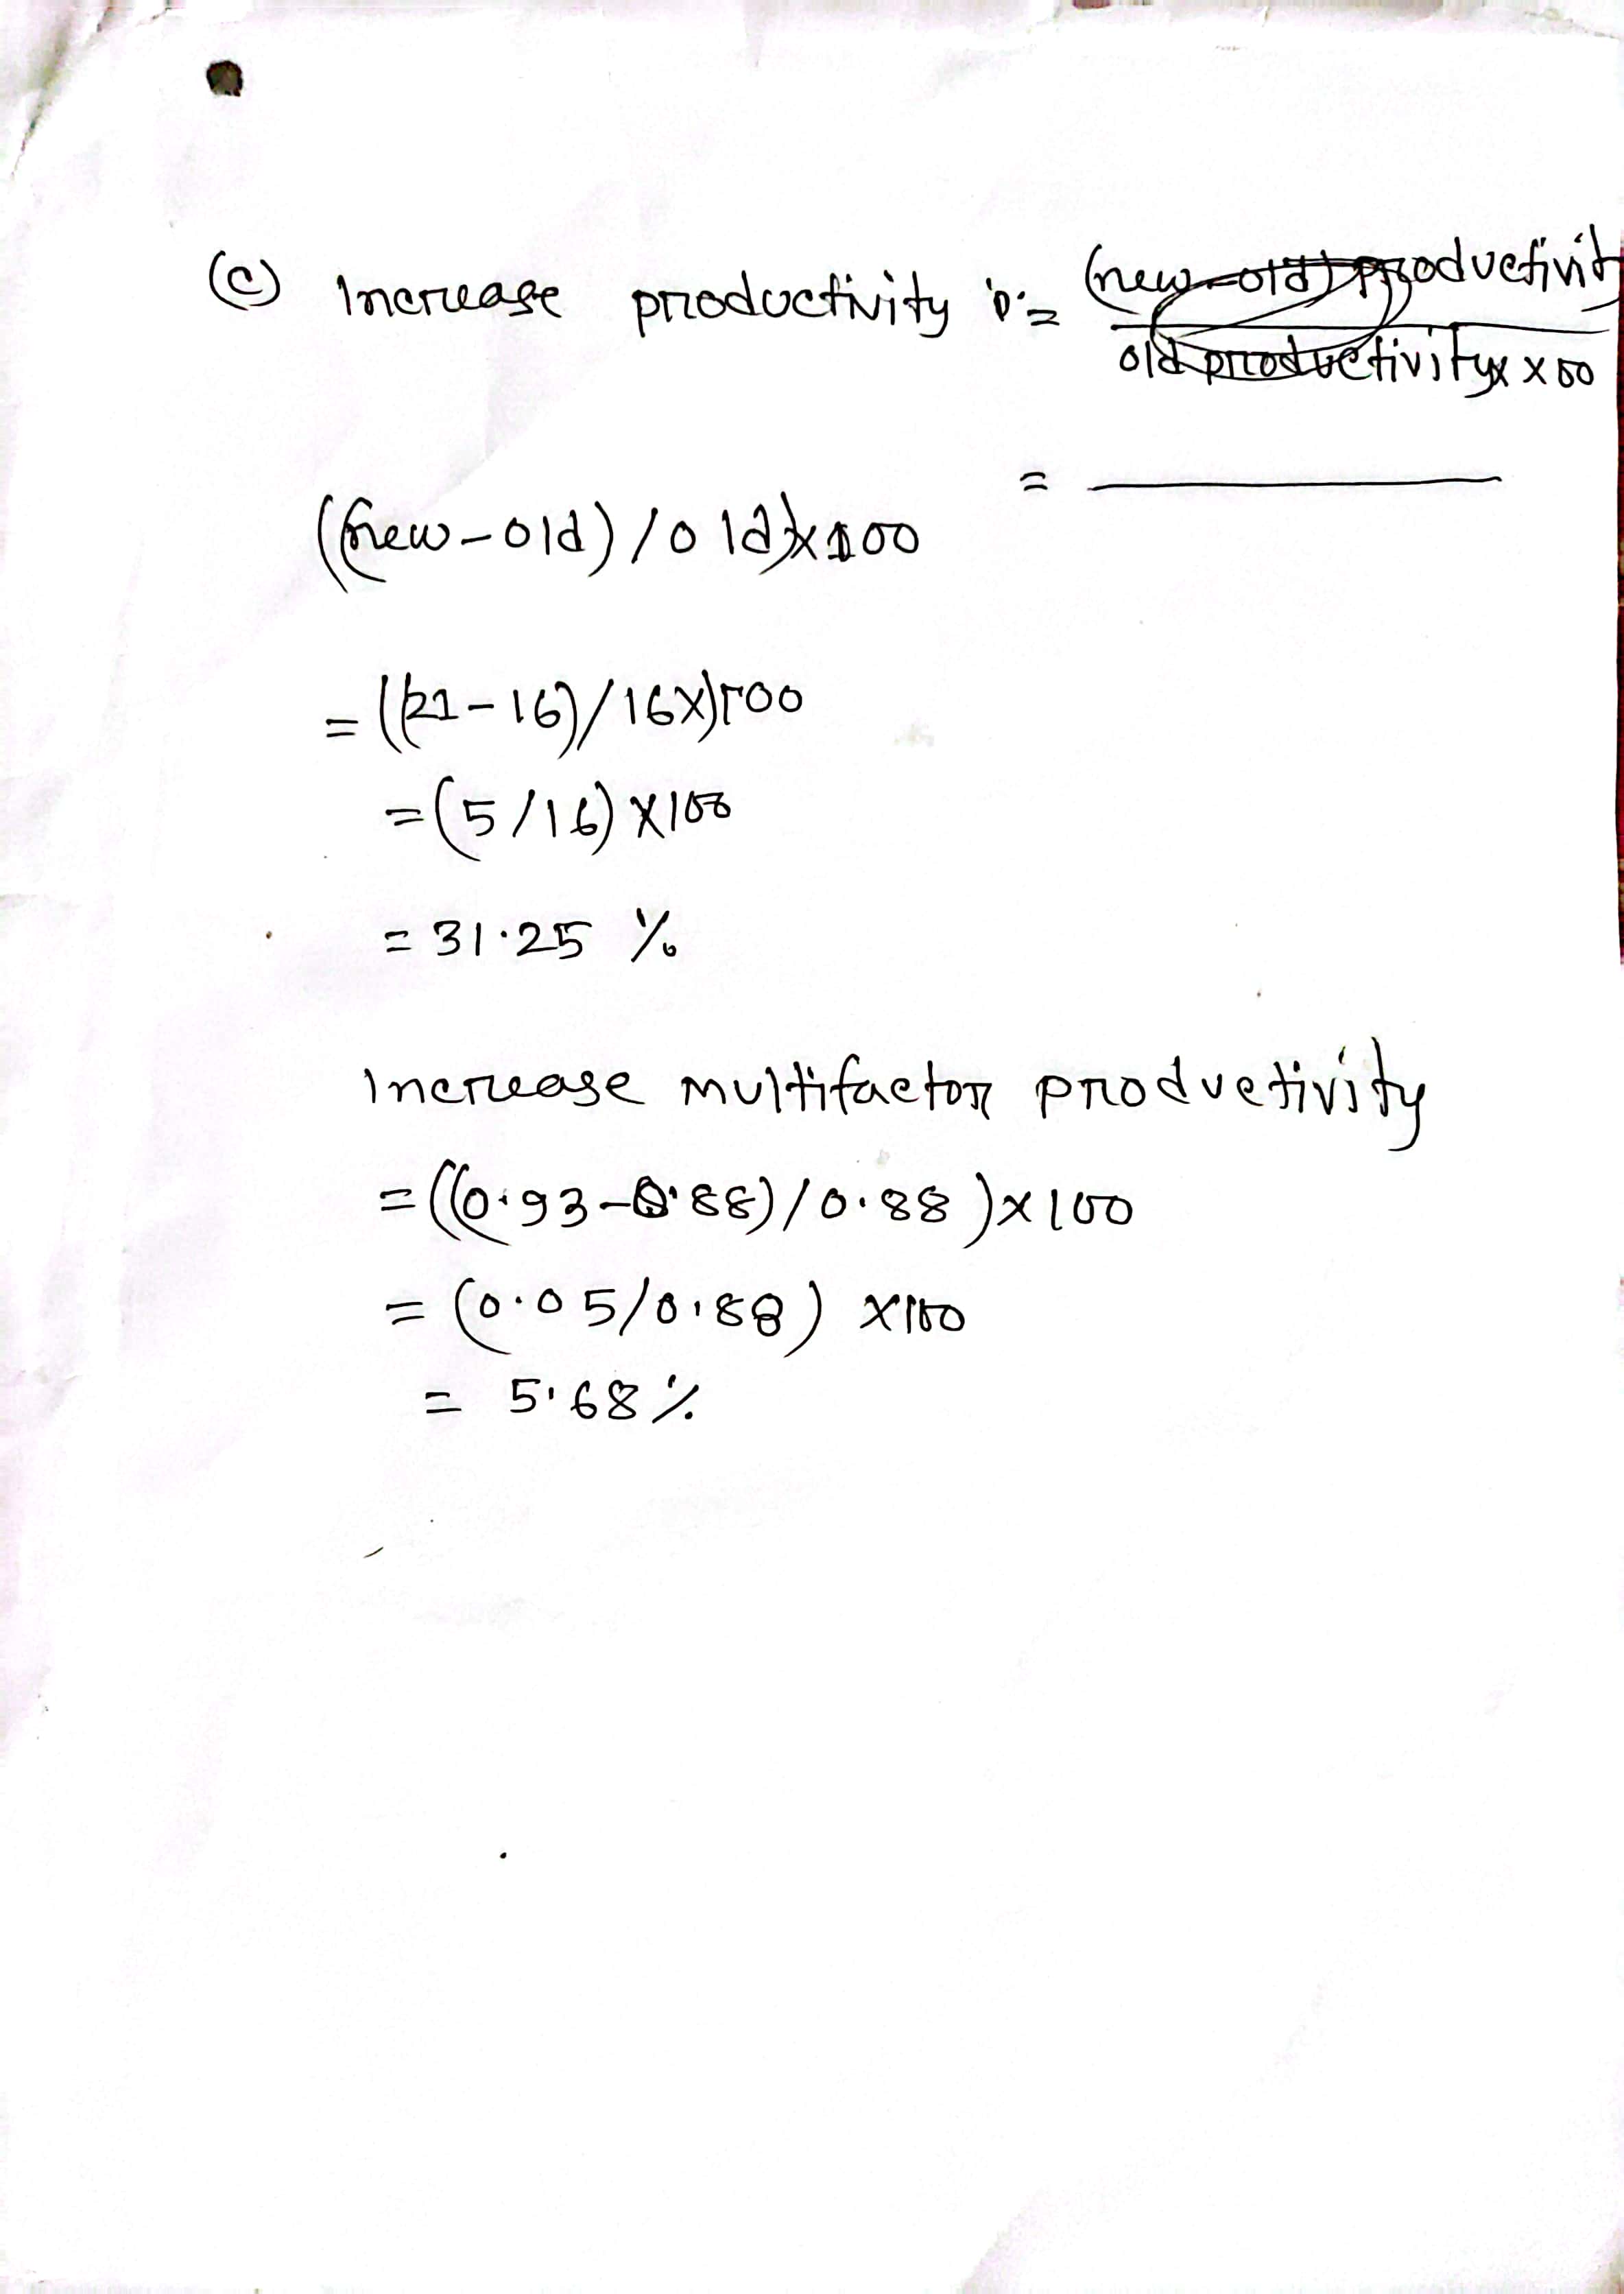 (c) Increase productivity = (new-old) productivit
old productivity x 100
=
((new-old)/old)x100
= ((21-16)/16x)100
=(5/16)x100
= 31.25 %
Increase multifactor productivity
= ((0.93-0.88)/0.88)x100
= (0.05/0.88) x100
= 5.68%